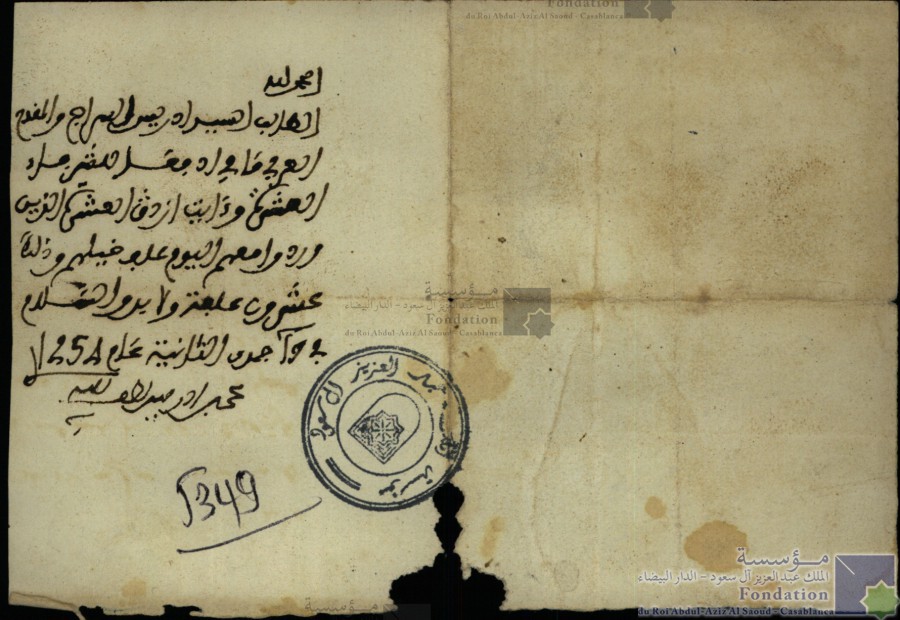 Fondation
du Roi Abdul-Aziz Al Saoud - Casablanca
الحمد لله
الطالب السيد ادريس السراج والمقدم
العربي
العشرة العشرة الذين
وردوا معهم اليوم على خيلهم وذلك
عشرون علفة ولا بد والسلام
في جمدى الثانية عام 1254
محمد ادريس لطف الله به
مؤسسة
الملك عبد العزيز آل سعود - الدار البيضاء
Fondation
du Roi Abdul-Aziz Al Saoud - Casablanca
مؤسسة الملك عبد العزيز آل سعود
1349
مؤسسة
الملك عبد العزيز آل سعود - الدار البيضاء
Fondation
du Roi Abdul-Aziz Al Saoud - Casablanca
مؤسسة